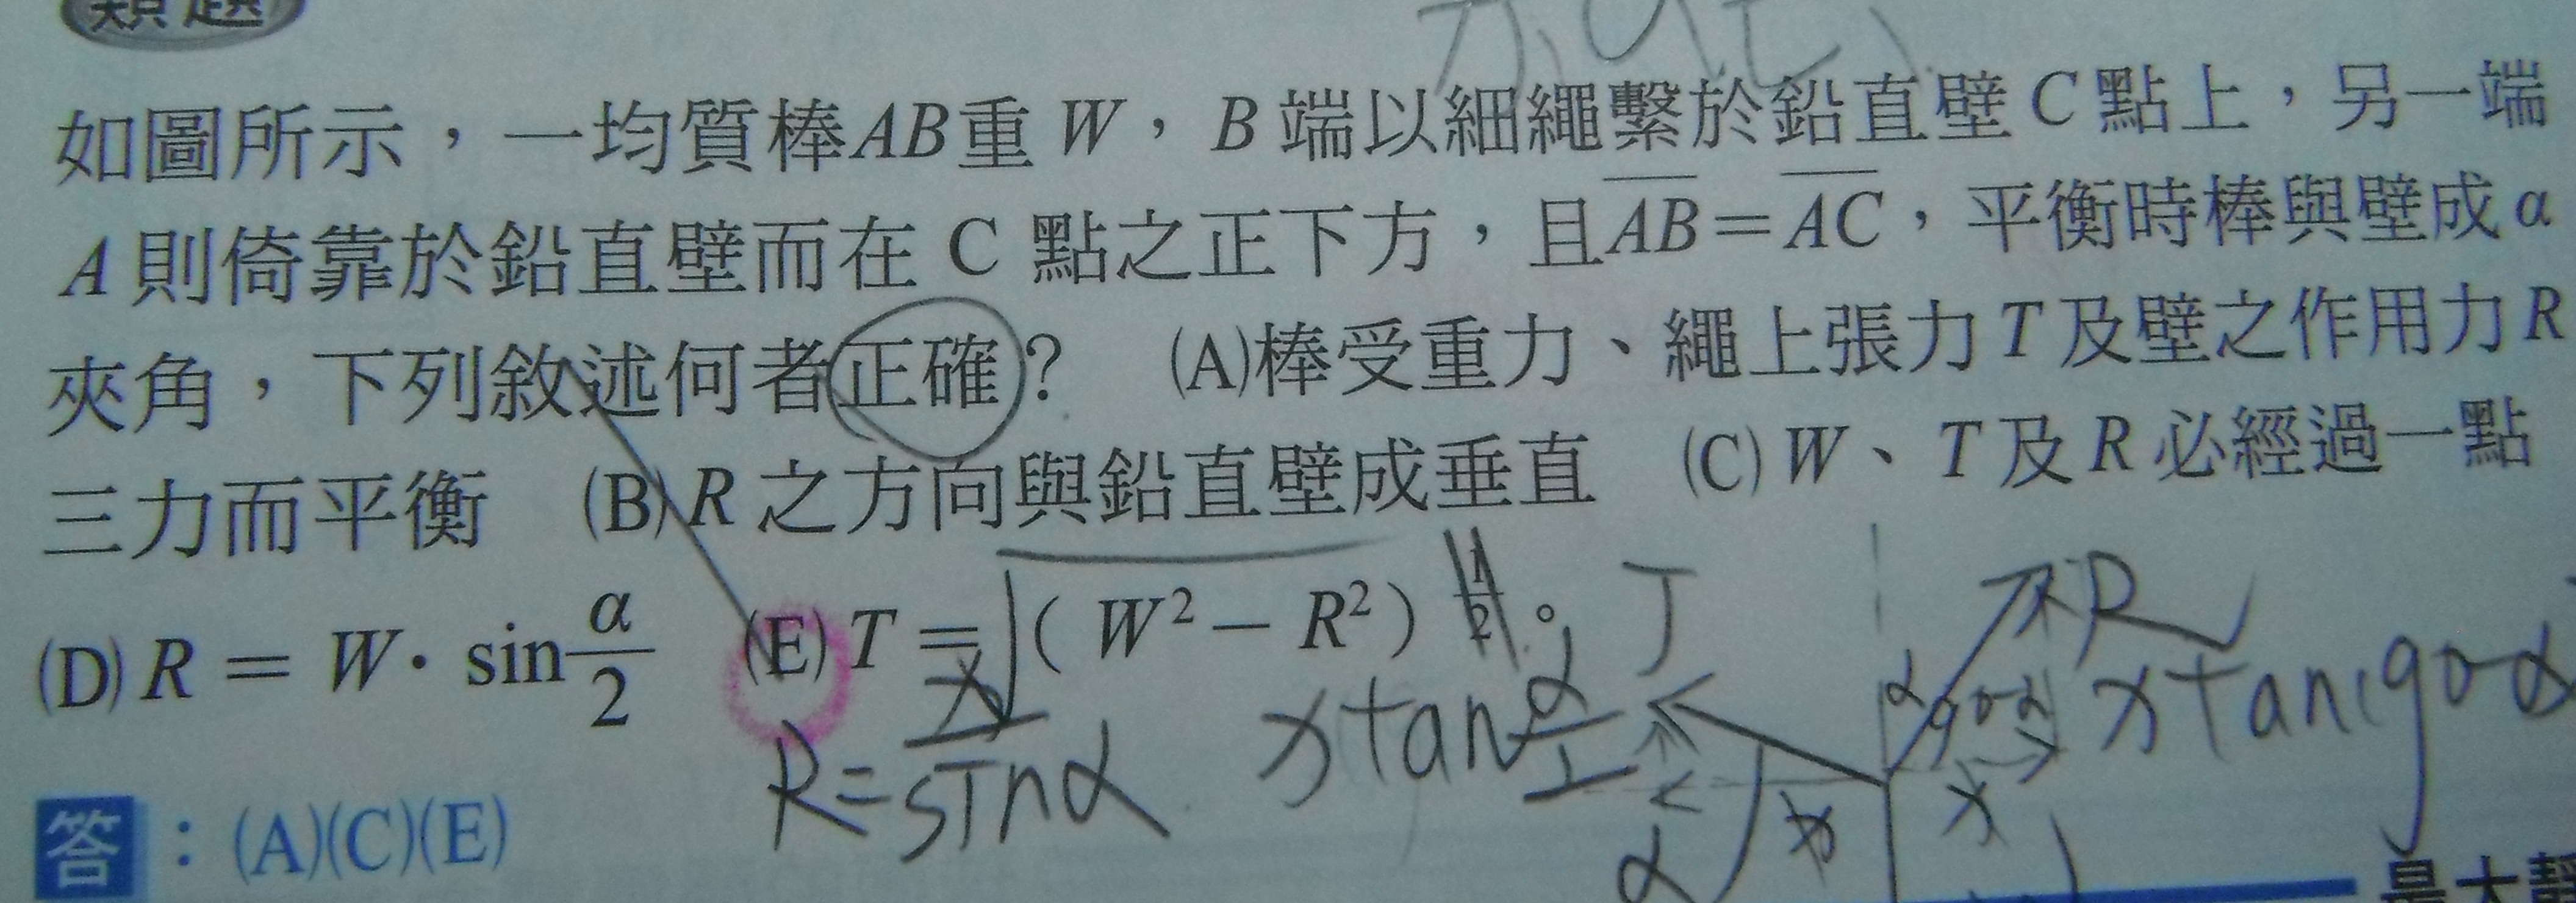 類題
如圖所示，一均質棒AB重 W，B 端以細繩繫於鉛直壁 C 點上，另一端
A 則倚靠於鉛直壁而在 C 點之正下方，且AB＝AC，平衡時棒與壁成 α
夾角，下列敘述何者正確？ (A)棒受重力、繩上張力 T 及壁之作用力 R
三力而平衡 (B) R 之方向與鉛直壁成垂直 (C) W、T 及 R 必經過一點
(D) R = W · sin α/2 (E) T = ( W² − R² ) 1/2。
T R
α 90-α x tan(90-α
R = x/sinα x tan α/2
α x x
答：(A)(C)(E)